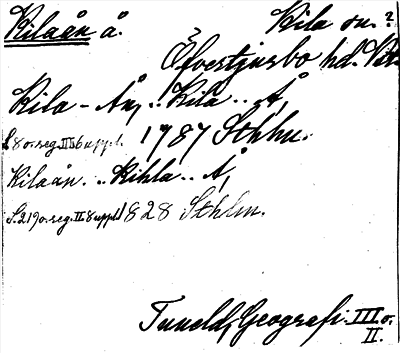 Kilaån å. Kila sn.?
Öfvestjusbo hd. Vst.
Kila-Ån, "Kila" Å,
S. 8 o. reg. III b 6 uppl. 1787 Sthlm.
Kilaån. "Kihla" Å,
S. 219 o. reg. II. 8 uppl. 1828 Sthlm.
Tuneld, Geografi. III o.
II.